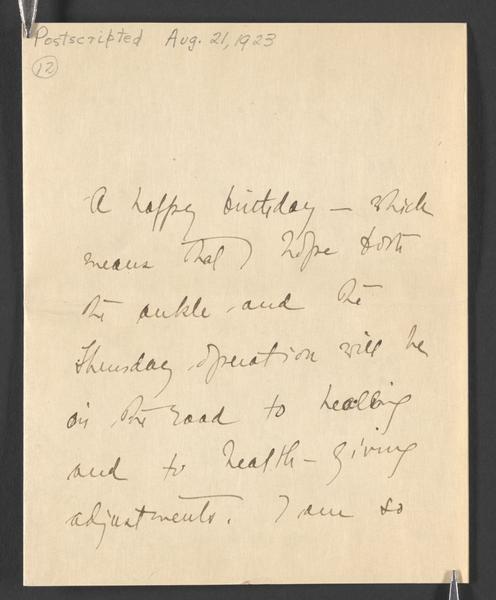 Postscripted Aug. 21, 1923
12
A happy birthday — which
means that I hope both
the ankle and the
Thursday operation will be
on the road to healing
and to health-giving
adjustments. I am so